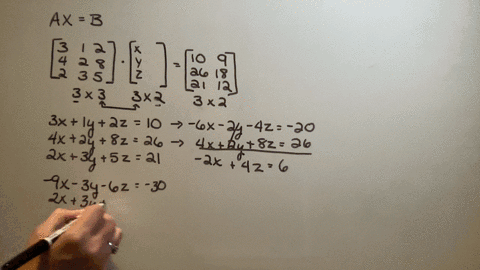 AX = B
[3 1 2] [x] [10 9]
[4 2 8] · [y] = [26 18]
[2 3 5] [z] [21 12]
3 x 3 3 x 2 3 x 2
3x + 1y + 2z = 10 → -6x - 2y - 4z = -20
4x + 2y + 8z = 26 → 4x + 2y + 8z = 26
2x + 3y + 5z = 21 -2x + 4z = 6
-9x - 3y - 6z = -30
2x + 3y +